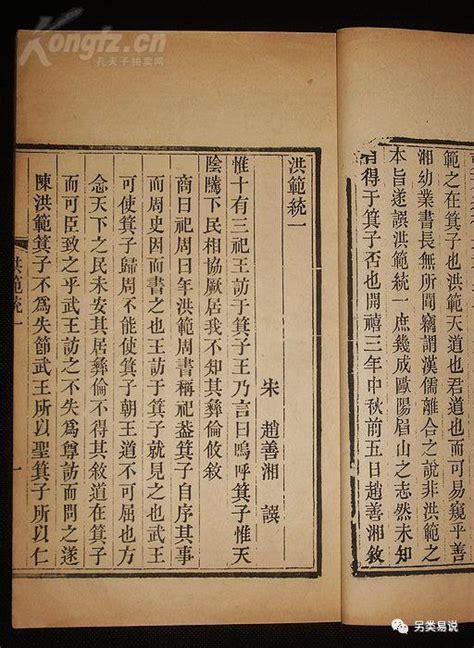 範之在箕子也洪範天道也而可易窺乎善
湘幼業書長無所竊謂漢儒離合之說非洪範之
本旨遂譔洪範統一庶幾成歐陽眉山之志然未知
得于箕子否也開禧三年中秋前五日趙善湘敘
洪範統一
宋 趙善湘 譔
惟十有三祀王訪于箕子王乃言曰嗚呼箕子惟天
陰騭下民相協厥居我不知其彝倫攸敘
商曰祀周曰年洪範周書稱祀葢箕子自序其事
而周史因而書之也王訪于箕子就見之也武王
可使箕子歸周不能使箕子朝王道不可屈也方
念天下之民未安其居彝倫不得其敘道在箕子
而可臣致之乎武王訪之不失為尊訪而問之遂
陳洪範箕子不為失節武王所以聖箕子所以仁
洪範統一
一
Kongfz.cn
孔夫子拍卖网
另类易说